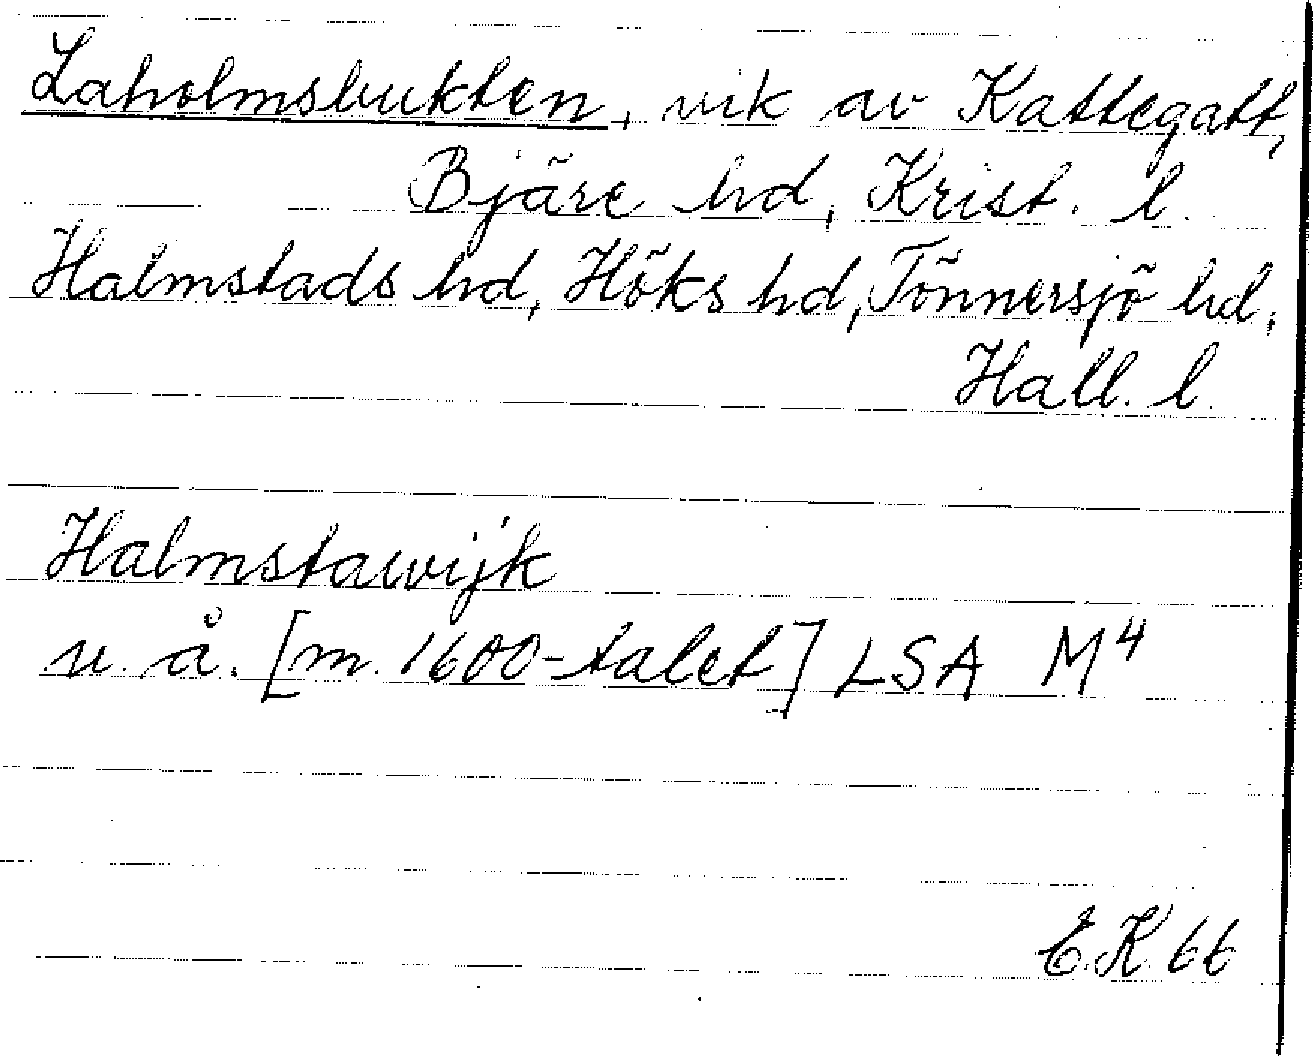 Laholmsbukten, vik av Kattegatt,
Bjäre hd, Krist. l.
Halmstads hd, Höks hd, Tönnersjö hd,
Hall. l.
Halmstawijk
u. å. [m. 1600-talet] LSA M4
E.K. 66